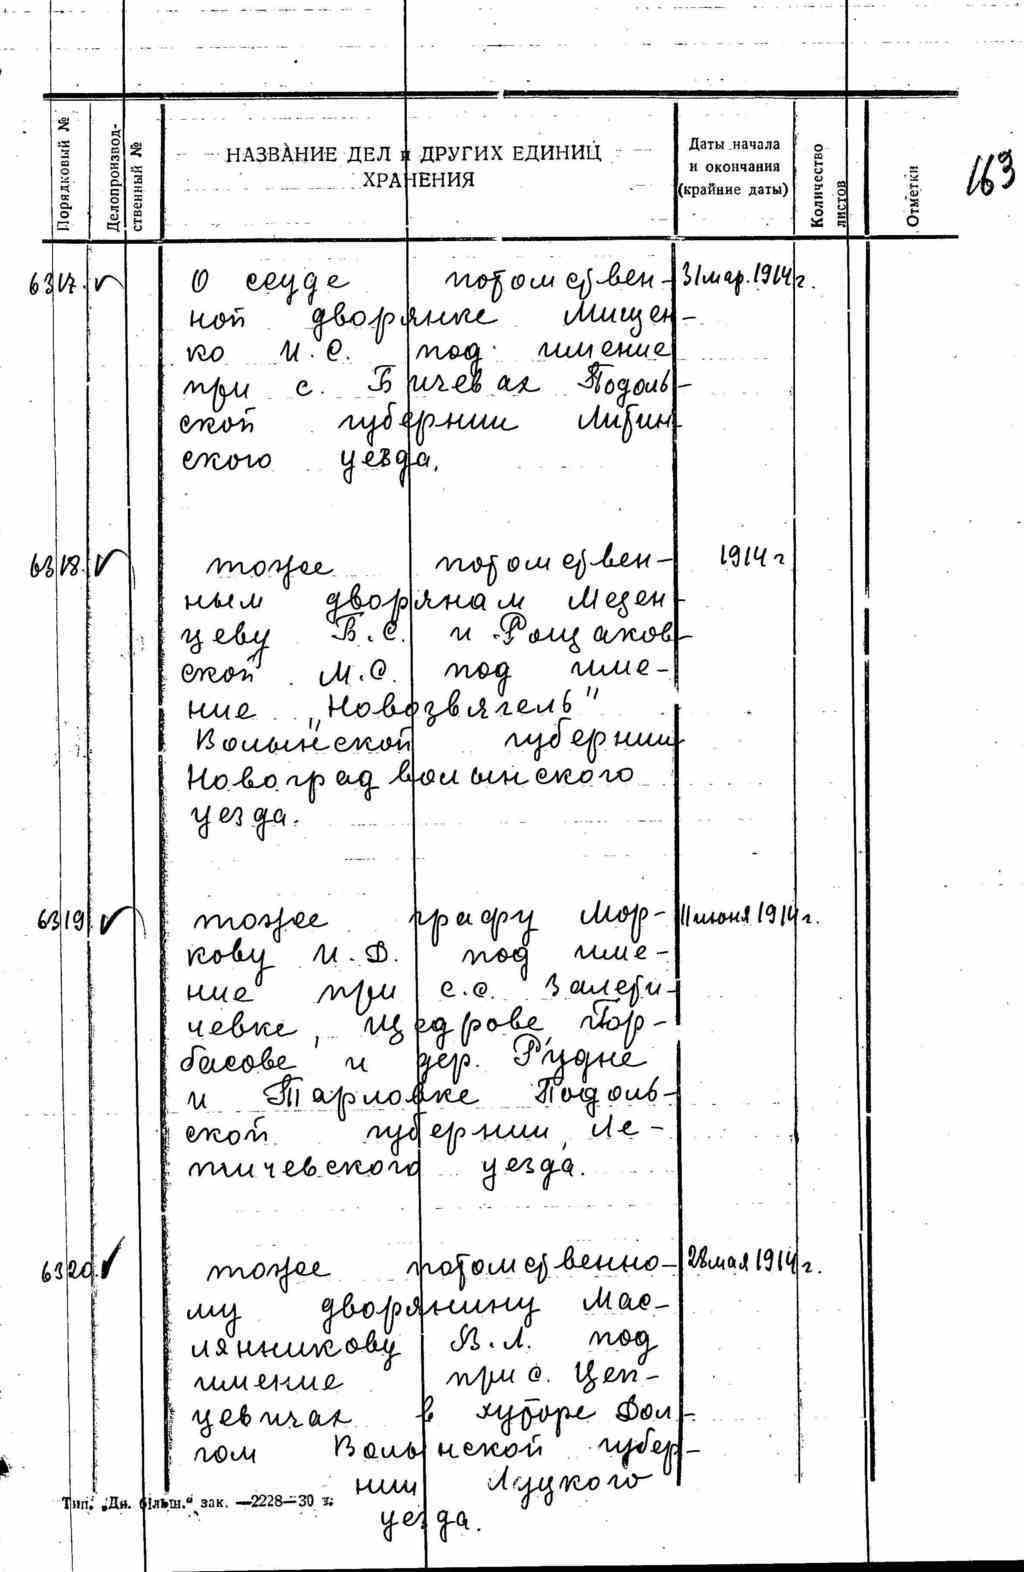 Порядковый №
Делопроизвод-
ственный №
НАЗВАНИЕ ДЕЛ и ДРУГИХ ЕДИНИЦ
ХРАНЕНИЯ
Даты начала
и окончания
(крайние даты)
Количество
листов
Отметки
163
6317. О ссуде потомствен- 31 мар. 1914 г.
ной дворянке Мищен-
ко И.С. под имение
при с. Бичевах Подоль-
ской губернии Литин
ского уезда.
6318. тоже потомствен- 1914 г
ным дворянам Мезен
цеву В.С. и Рощаков-
ской М.С. под име-
ние „Новозвягель"
Волынской губернии
Новоградволынского
уезда.
6319 тоже графу Мор- 11 июня 1914 г.
кову И.Д. под име-
ние при с.с. Залети-
чевке, Щедрове, Гор-
басове и дер. Рудне
и Тарловке Подоль-
ской губернии, Ле-
тичевского уезда.
6320. тоже потомственно- 28 мая 1914 г.
му дворянину Мас-
лянникову В.Л. под
имение при с. Цеп-
цевичах в хуторе Дол-
гом Волынской губер-
нии Луцкого
уезда.
Тип. „Дн. більш." зак. —2228—30 т.